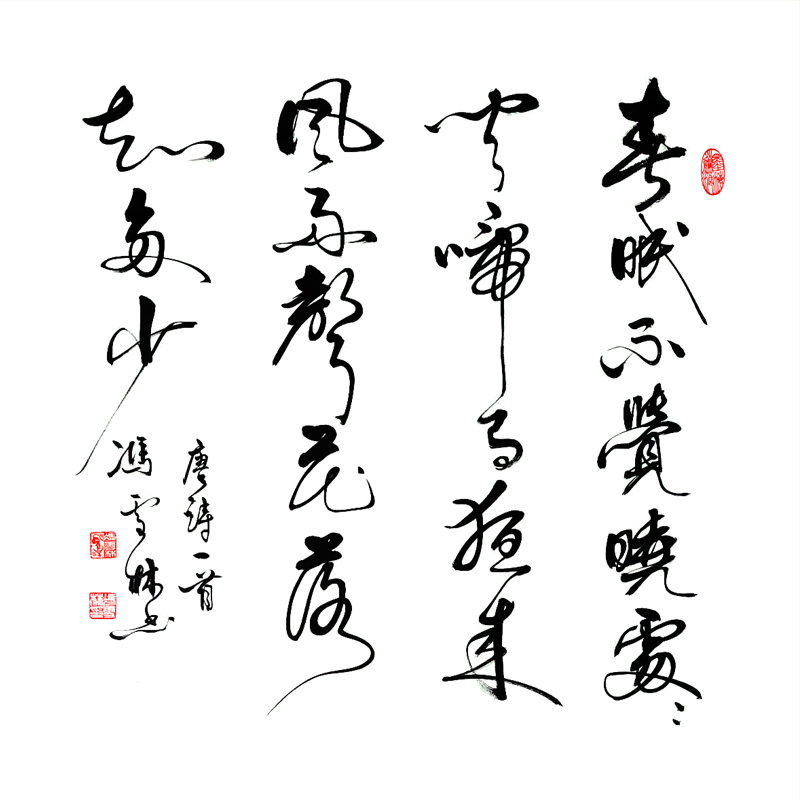 春眠不覺曉處々
聞啼鳥夜來
風雨聲花落
知多少
唐詩一首
馮雪林书